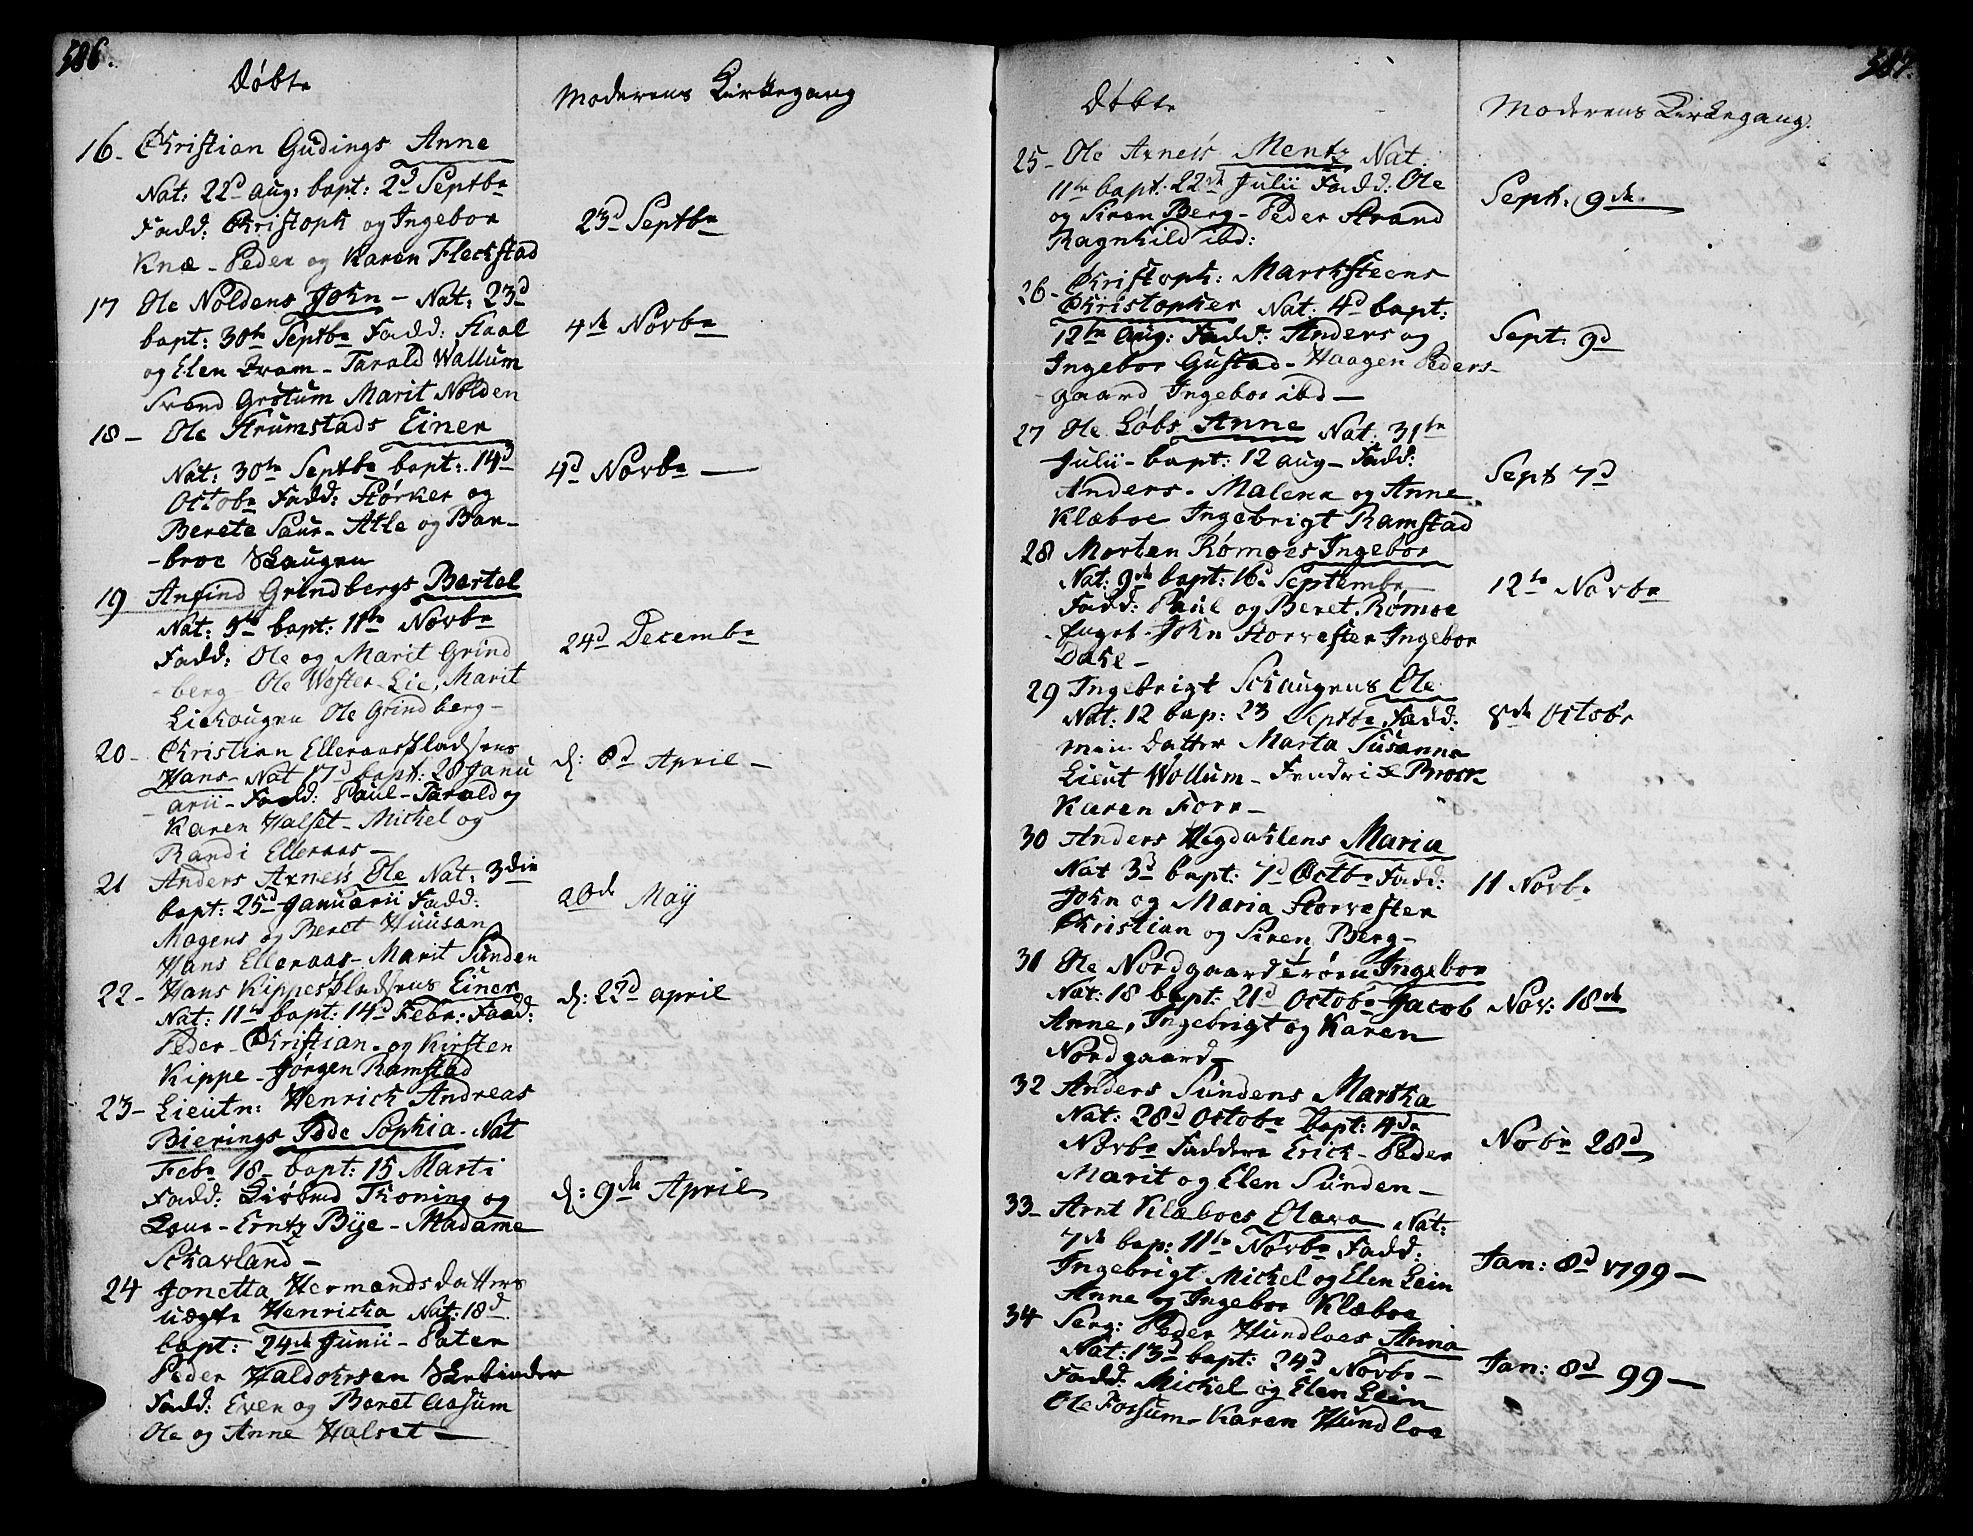 586.
Døbte
Moderens Kirkegang
16. Christian Gudings Anne
Nat: 22d Aug: bapt: 2d Septbr
Fadd: Christoph og Ingebor
Knæ - Peder og Karen Fleckstad
23d Septbr
17 Ole Noldens John - Nat: 23d
bapt: 30te Septbr Fadd: Staal
og Elen Tram - Tarald Wallum
Svend Grøtum Marit Nolden
4de Novbr
18 - Ole Strumstads Einer
Nat: 30te Septbr bapt: 14d
Octobr Fadd: Størker og
Berete Saur - Atle og Bar-
-broe Skaugen
4d Novbr -
19 Anfind Grindbergs Bertel
Nat: 9de bapt: 11te Novbr
Fadd: Ole og Marit Grind
-berg - Ole Wester-Lie, Marit
Liehougen Ole Grindberg -
24d Decembr
20 - Christian Elleraas Pladsens
Hans - Nat 17d bapt: 28 Janu
arii - Fadd: Paul - Tarald og
Karen Halset - Michel og
Randi Elleraas -
d: 8d April -
21 Anders Axnes's Ole Nat: 3die
bapt: 25d Januarii Fadd:
Mogens og Beret Huusan
Hans Elleraas - Marit Sunden
20de May
22 - Hans Kippes Pladsens Einer
Nat: 11te bapt: 14d Febr: Fadd:
Peder - Christian - og Kirsten
Kippe - Jørgen Ramstad
d: 22d April
23 - Lieutn: Henrick Andreas
Bierings Sophia - Nat
Febr 18 - bapt: 15 Marti
Fadd: Thoning og
- Erntz Bye - Madame
Schavland -
d: 9de April
24 Jonetta Hermandsdatters
uægte Henricha Nat: 18d
bapt: 24de Junii - Pater
Peder Haldorsen Skrbinder
Fadd: Even og Beret Aasum
Ole og Anne Halset -
587.
Døbte
Moderens Kirkegang.
25 - Ole Axnes's Mentz Nat:
11te bapt: 22de Julii Fadd: Ole
og Siren Berg - Peder Strand
Ragnhild ibd:
Sept: 9de
26 - Christoph: Marchsteens
Christopher Nat: 4d bapt:
12te Aug: Fadd: Anders og
Ingebor Gustad - Haagen Peders-
gaard, Ingebor ibd -
Sept: 9d
27 Ole Løbs Anne Nat: 31te
Julii - bapt: 12 Aug - Fadd:
Anders - Malena og Anne
Klæboe Ingebrigt Ramstad
Sept 7d
28 Morten Rømoes Ingebor
Nat: 9de bapt: 16d Septembr
Fadd: Paul og Beret Rømoe
John Storvester Ingebor
Dahl -
12te Novbr
29 Ingebrigt Schaugens Ole
Nat: 12 bap: 23 Septbr Fadd:
min datter Marta Susanna
Lieut Wollum - Fendrick Brock
Karen Forr -
8de Octobr
30 Anders Hegdahlens Maria
Nat 3d bapt: 7d Octbr Fadd:
John og Maria Storvester
Christian og Siren Berg -
11 Novbr
31 Ole Nordgaardsrøens Ingebor
Nat: 18 bapt: 21d Octobr Jacob
Anne, Ingebrigt og Karen
Nordgaard -
Nov: 18de
32 Anders Sundens Martha
Nat: 28d Octobr bapt: 4de
Novbr Faddere Erick - Peder
Marit og Elen Sunden -
Nobr 28d
33 - Arnt Klæboes Olava Nat:
7de bap: 11te Novbr Fadd:
Ingebrigt Michel og Elen Lein
Anne og Ingebor Klæboe
Jan: 8d 1799 -
34 Serg: Peder Hundloes Anna
Nat: 13d bapt: 24d Novbr -
Fadd: Michel og Elen Lein
Ole Forsum - Karen Hundloe
Jan: 8d 99 -